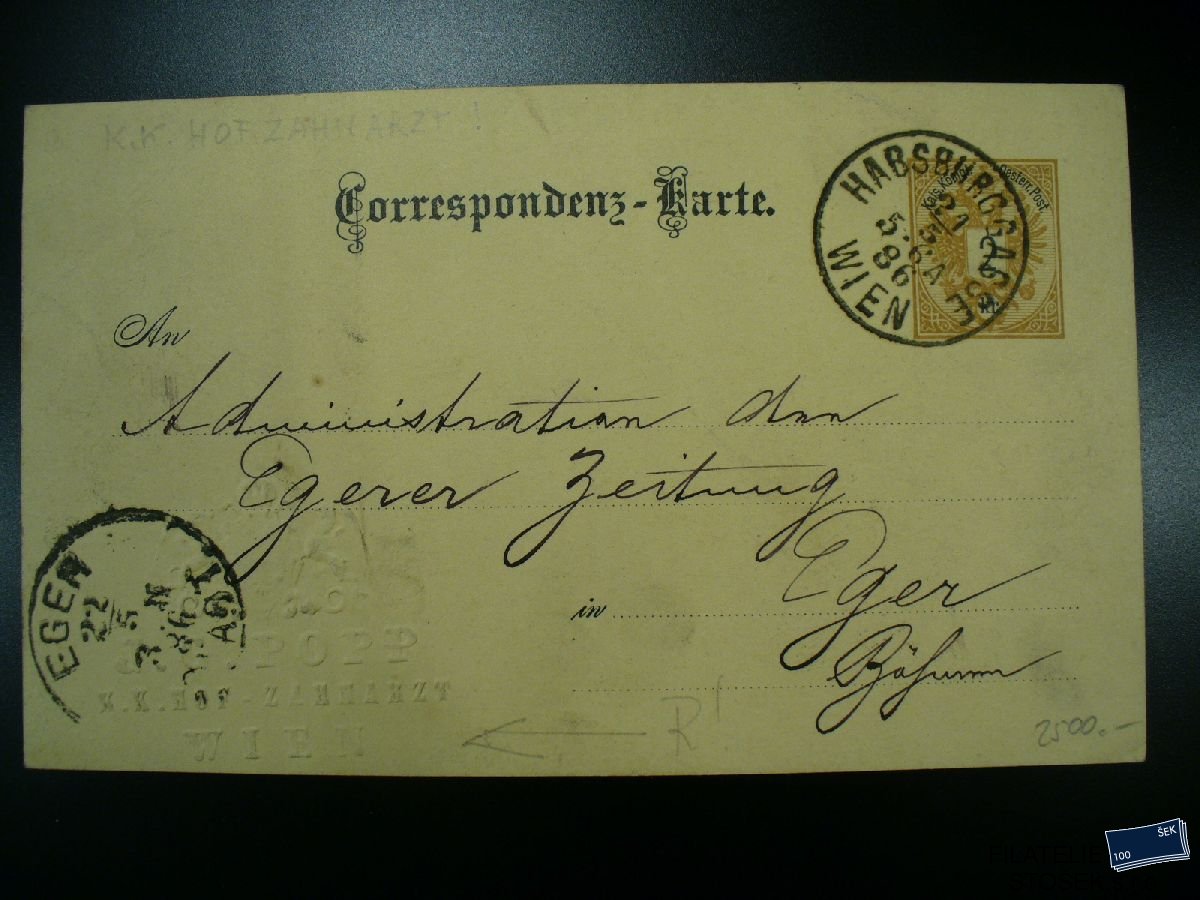 K.K. HOFZAHNARZT!
Correspondenz-Karte.
HABSBURGGASSE
WIEN
21
5
86
Kais. Königl. Oesterr. Post.
2
An
Administration der
Egerer Zeitung
in Eger
Böhmen
EGER
22
5
3 N
86
POPP
K.K. HOF-ZAHNARZT
WIEN
R!
2500.-
FILATELIE
100
ŠEK